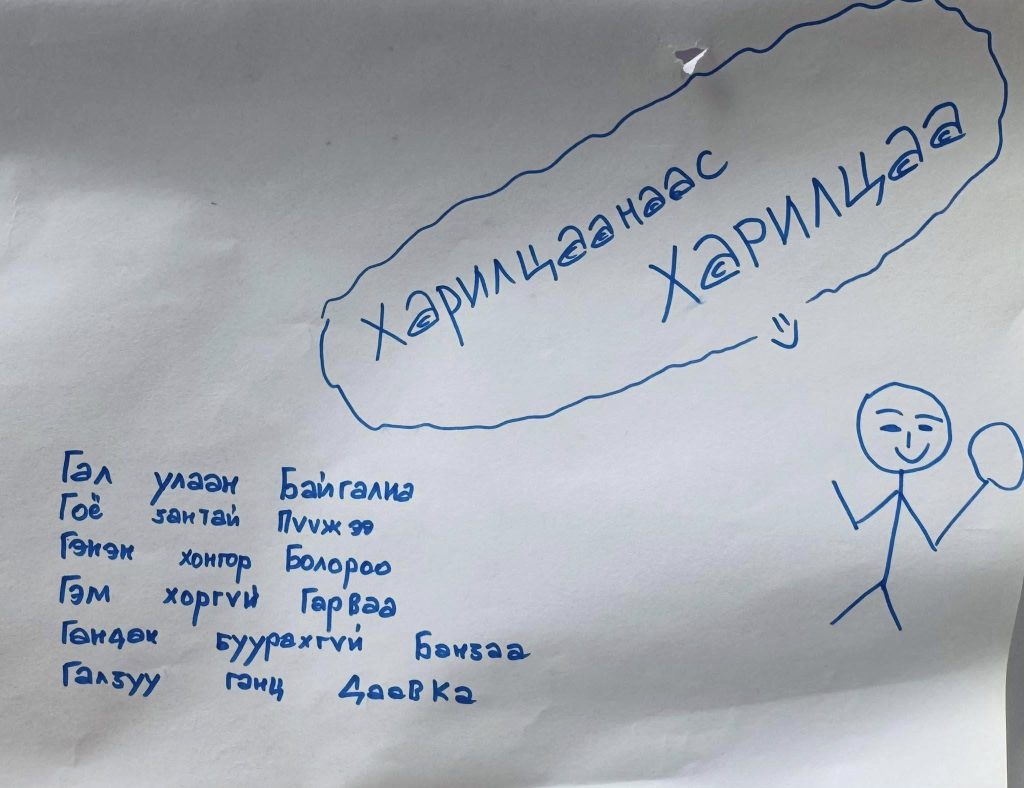 Харилцаанаас
Харилцаа
Гал улаан Байгалиа
Гоё зантай Пүүжээ
Гэнэн хонгор Болороо
Гэм хоргүй Гарваа
Гандан буурахгүй Банзаа
Галзуу ганц Даавка